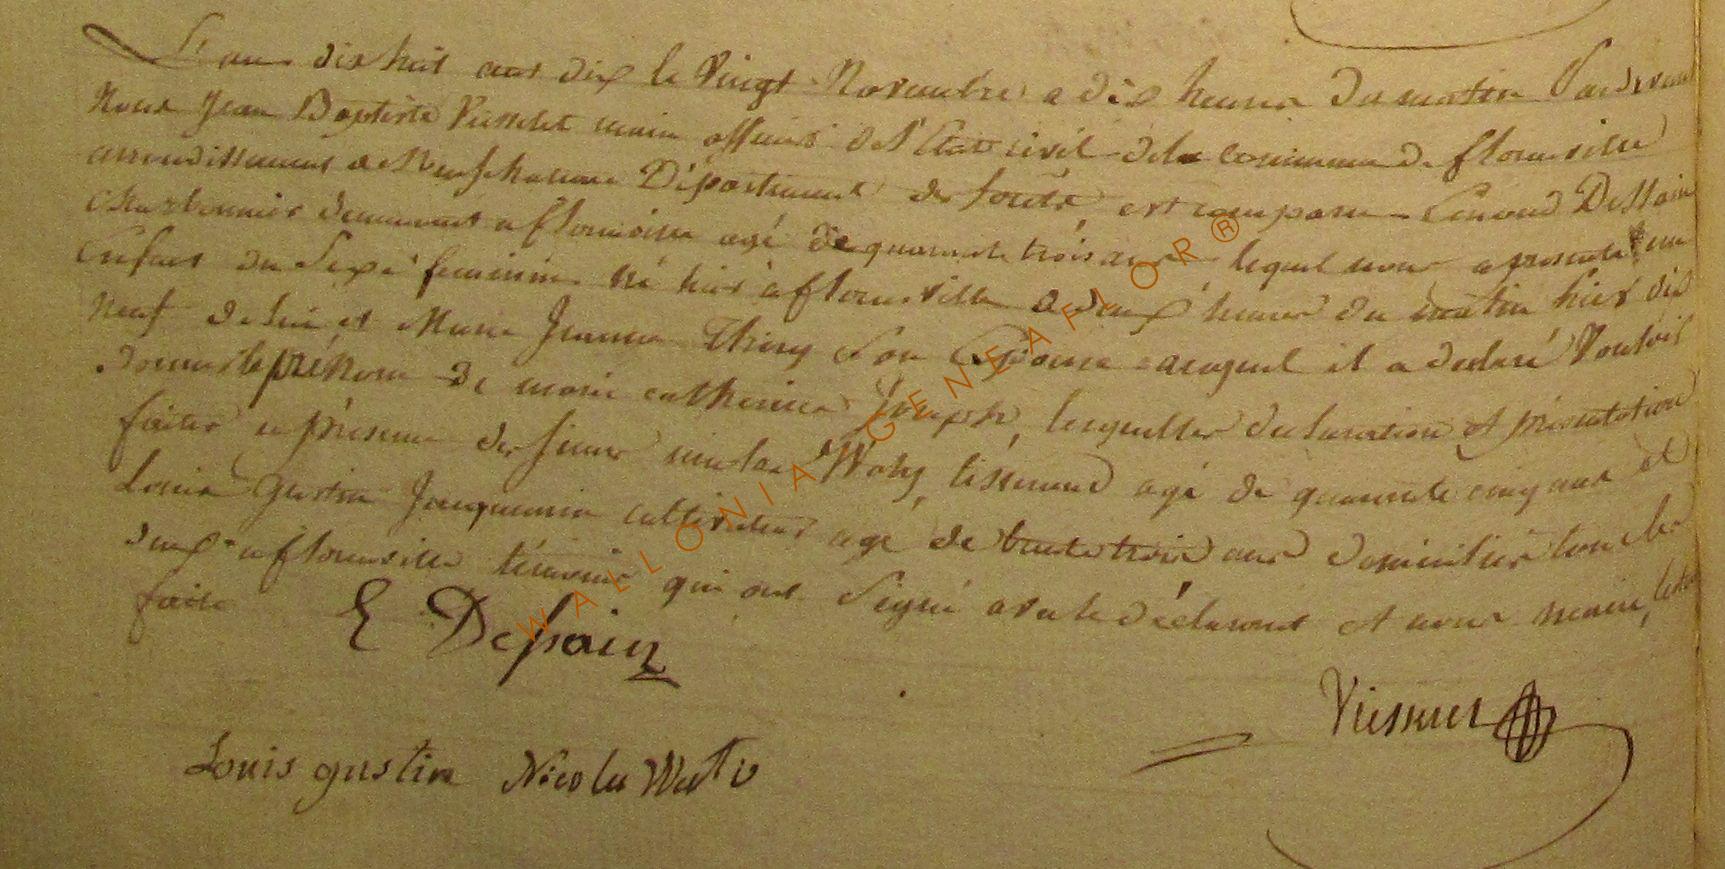 L'an dix huit cent dix le vingt Novembre a dix heures du matin Pardevant
Nous Jean Baptiste maire officier de l'Etat civil de la commune de florenville
arrondissement de Neufchateau Département des forêts, est comparu Dessain
Charbonnier demeurant a florenville agé de quarante trois ans lequel nous a presenté un
Enfant du Sexe feminin né hier à florenville a deux heures du matin hier dix
neuf de lui et Marie Jeanne Thiry Son Epouse auquel il a declaré Vouloir
donner le prénom de marie catherine Joseph, lesquelles declaration et présentation
faites en présence des sieurs nicolas Watiy tisserand agé de quarante cinq ans et
Louis Gustin Jacquemin cultivateur agé de trente trois ans domiciliés tous les
deux a florenville témoins qui ont Signé avec le déclarant et nous maire,
faite
E Dessain
Louis gustin Nicola
WALLONIA GENEAFLOR®